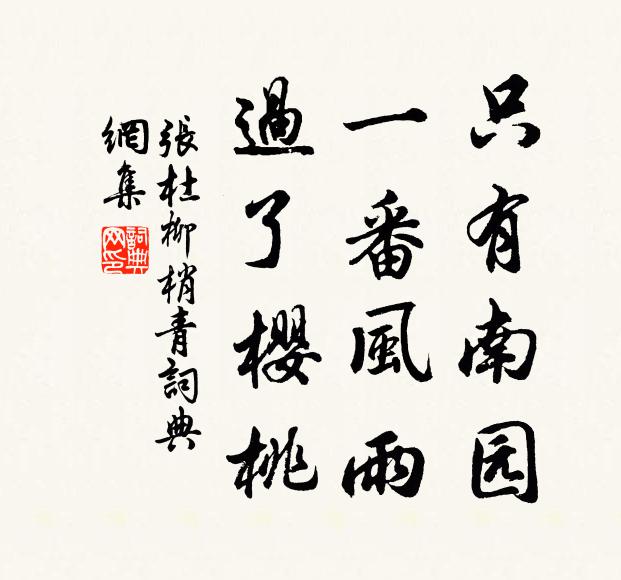 只有南园
一番風雨
過了櫻桃
張杜柳梢青詞典
網集
詞典網印